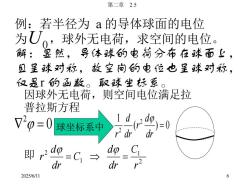 第二章 2.5
例：若半径为 a 的导体球面的电位
为U₀，球外无电荷，求空间的电位。
解：显然，导体球的电荷分布在球面上，
且呈球对称，故空间的电位也呈球对称，
仅是r 的函数。取球坐标系。
因球外无电荷，则空间电位满足拉
普拉斯方程
∇²φ = 0 球坐标系中 (1/r²) d/dr (r² dφ/dr) = 0
即 r² dφ/dr = C₁ ⇒ dφ/dr = C₁/r²
2025/6/11 6